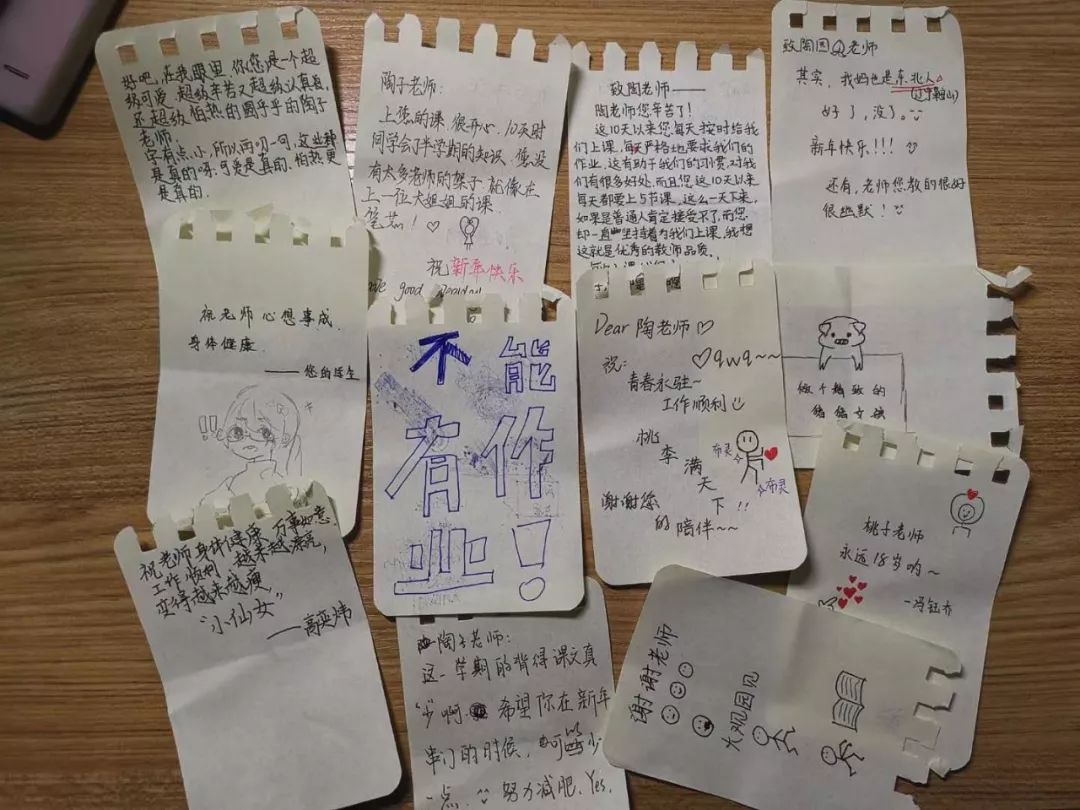 好吧，在我眼里，你您是一个超
级可爱、超级辛苦又超级认真、
还超级怕热的圆乎乎的陶子
老师。
字有点小，所以再叨一句，这些都
是真的呀：可爱是真的，怕热更
是真的。
陶子老师：
上您的课，很开心，10天时
间学会了半学期的知识，您没
有太多老师的架子，就像在
上一位大姐姐的课
祝新年快乐
good
致陶老师——
陶老师您辛苦了！
这10天以来您每天按时给我
们上课，每天严格地要求我们的
作业，这有助于我们的习惯，对我
们有很多好处，而且您这10天以来
每天都要上5节课，这么一天下来，
如果是普通人肯定接受不了，而您
却一直坚持着为我们上课，我想
这就是优秀的教师品质。
致陶园Q老师
其实，我妈也是东北人
(辽宁鞍山)
好了，没了。
新年快乐!!!
还有，老师您教的很好
很幽默！
祝老师心想事成，
身体健康
——您的学生
!!
不能
有作
业！
嘿嘿
Dear 陶老师♡
祝：
♡qwq~~
青春永驻~
工作顺利
桃
李
满
天
下!!
布灵
布灵
谢谢您
的陪伴~~
做个精致的
猪猪女孩
桃子老师
永远18岁哟~
祝老师身体健康，万事如意
工作顺利，越来越漂亮，
变得越来越瘦，
“小仙女”
——高奕炜
陶子老师：
这一学期的背得课文真
“少”啊。希望你在新年
串门的时候，吃少
一点。努力减肥，Yes,
谢谢老师
大观园见